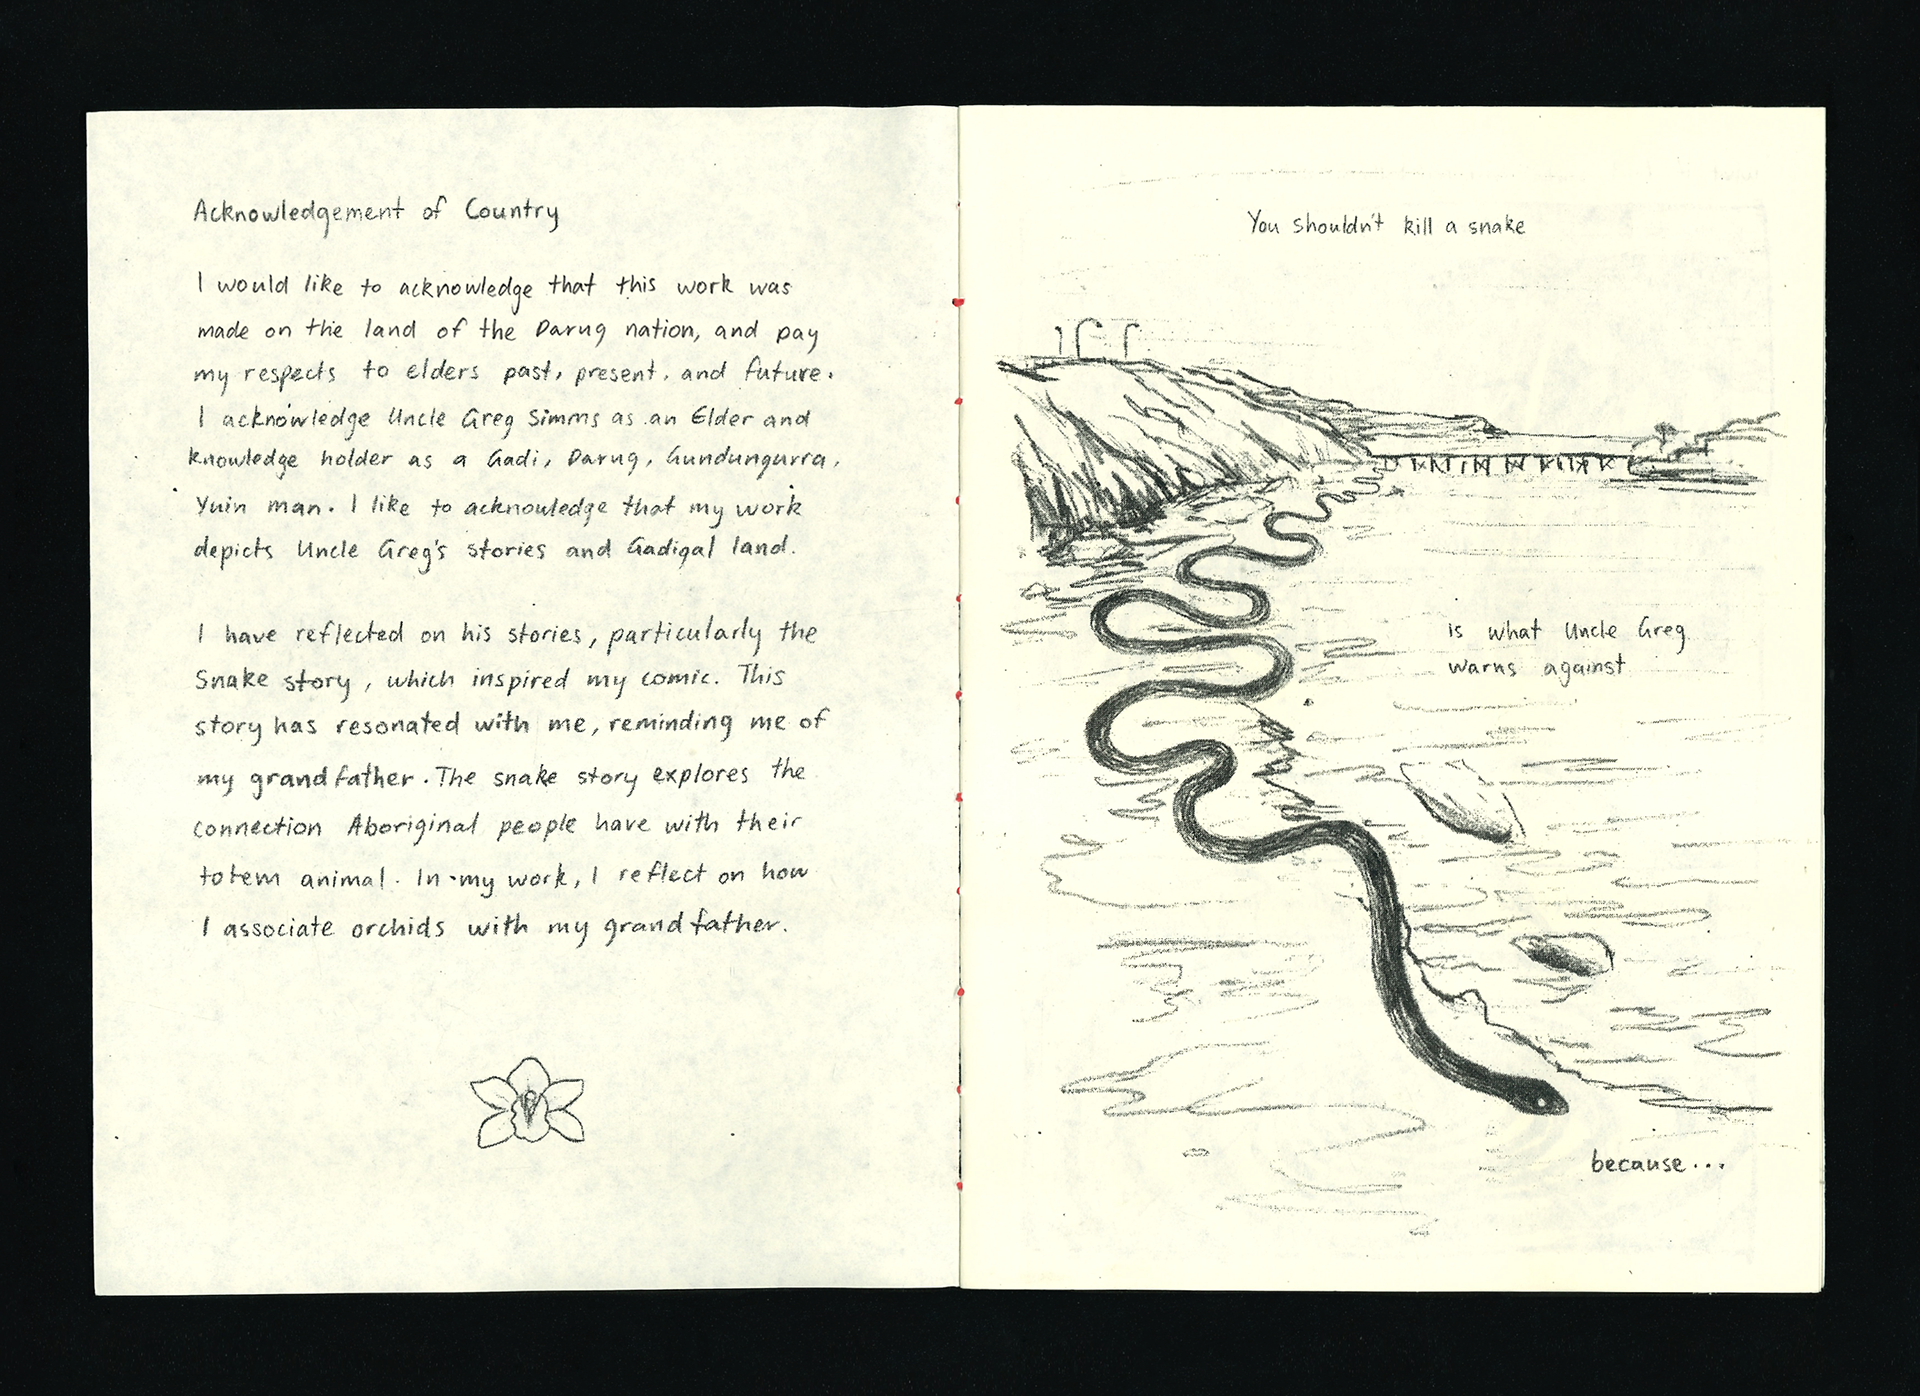 Acknowledgement of Country
I would like to acknowledge that this work was
made on the land of the Darug nation, and pay
my respects to elders past, present, and future.
I acknowledge Uncle Greg Simms as an Elder and
knowledge holder as a Gadi, Darug, Gundungurra,
Yuin man. I like to acknowledge that my work
depicts Uncle Greg's stories and Gadigal land.
I have reflected on his stories, particularly the
Snake story, which inspired my comic. This
story has resonated with me, reminding me of
my grandfather. The snake story explores the
connection Aboriginal people have with their
totem animal. In my work, I reflect on how
I associate orchids with my grandfather.
You shouldn't kill a snake
is what Uncle Greg
warns against
because...